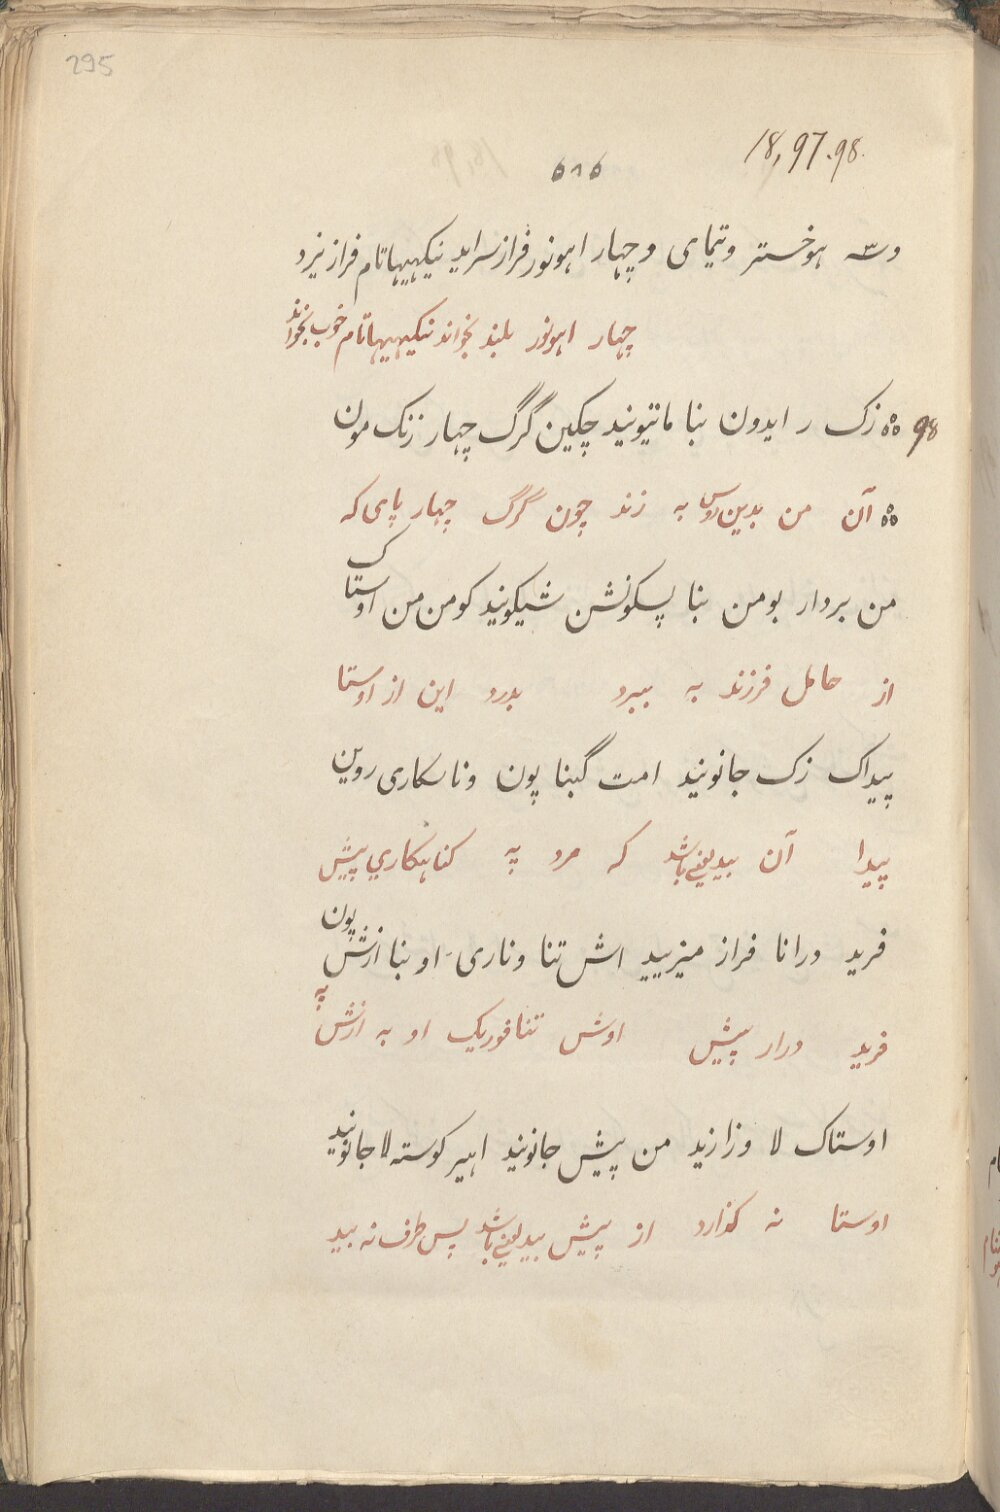 295
18,97.98.
۵۸۵
و سه هوخستر و تیمای و چهار اهونور فراز سراید نیکیهیها تام فراز نیزد
چهار اهونور بلند بخواند نیکیهیها تام خوب بخواند
98 زک ر ایدون بنا مانتیونید چکین گرگ چهار زنک مون
آن من بدین روس به زند چون گرگ چهار پای که
من بردار بومن بنا پسکونشن شیکونید کو من من اوستاک
از حامل فرزند به ببرد بدرد این از اوستا
پیداک زک جانونید امت گبنا پون وناسکاری روین
پیدا آن بید یعنی باشد که مرد په کناهکاري پیش
فرید ورانا فراز میزیید اش تنا وناری او بنا ازش پون
فرید ورار پیش اوش تنافوریک او به ازش په
اوستاک لا وزارید من پیش جانونید اهیر کوسته لا جانونید
اوستا نه کذارد از پیش بید یعنی باشد پس طرف نه بید